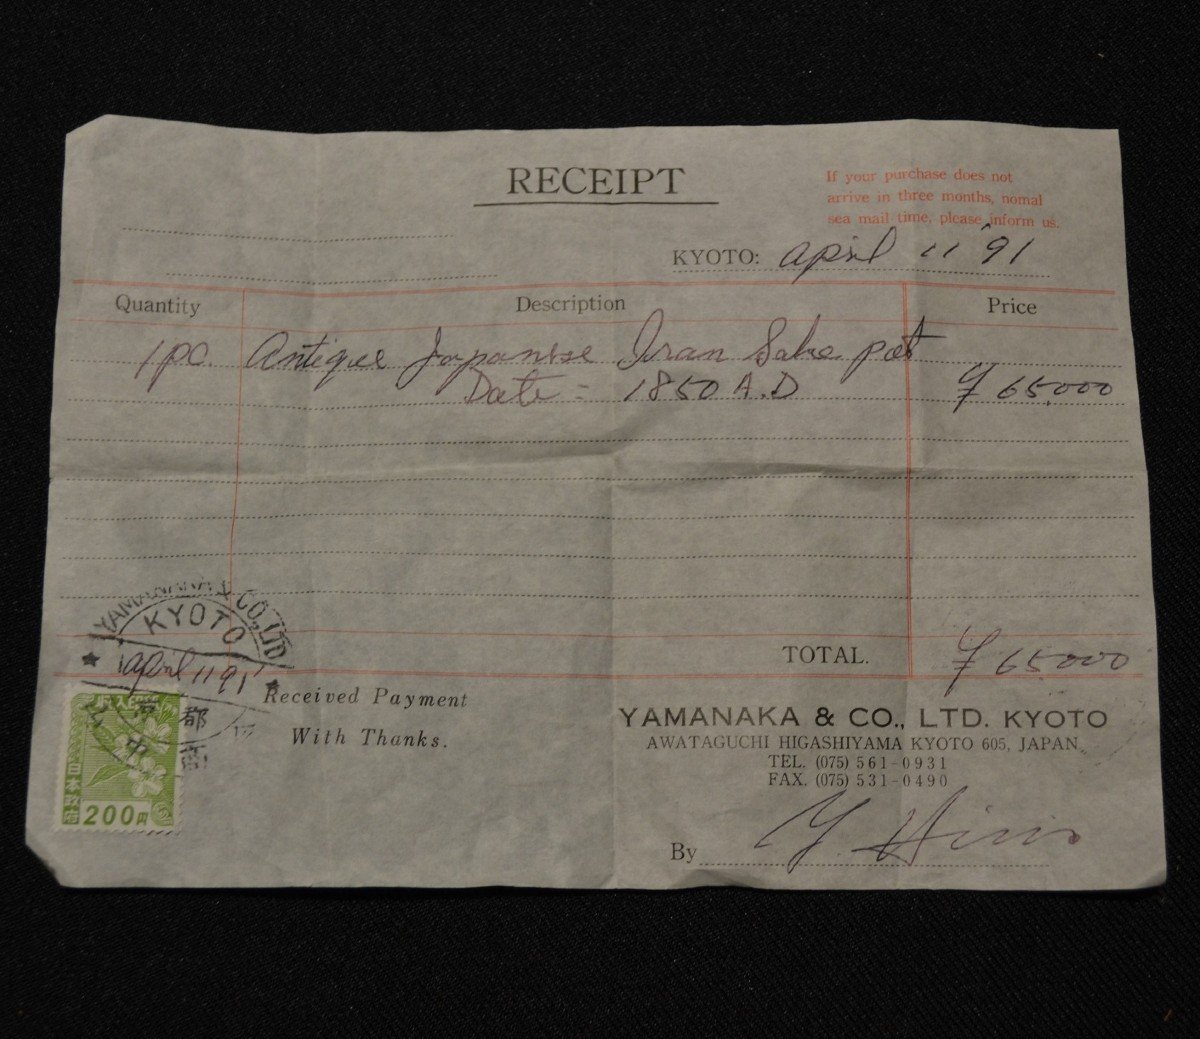 RECEIPT
If your purchase does not
arrive in three months, nomal
sea mail time, please inform us.
KYOTO: april 11 '91
Quantity Description Price
1pc. Antique Japanese Iran Sake pot
Date = 1850 A.D ¥ 65.000
TOTAL. ¥ 65.000
YAMANAKA & CO., LTD
KYOTO
april 11 91
京都
山中
Received Payment
With Thanks.
収入印紙
日本政府
200円
YAMANAKA & CO., LTD. KYOTO
AWATAGUCHI HIGASHIYAMA KYOTO 605, JAPAN
TEL. (075) 561-0931
FAX. (075) 531-0490
By